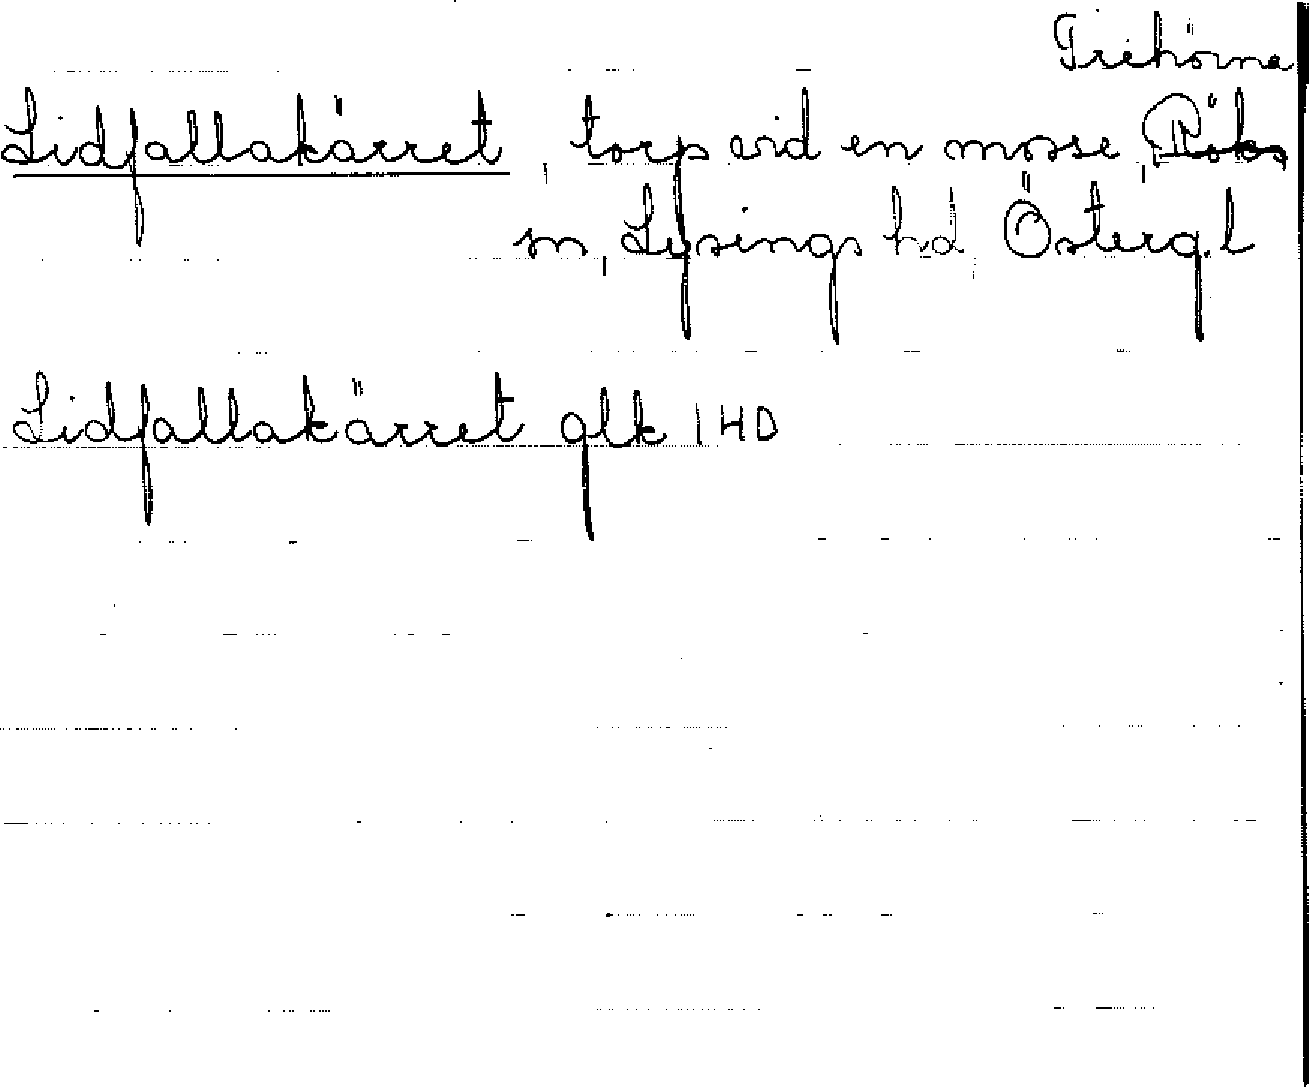 Trehörna
Lidfallakärret, torp vid en mosse, Röks
sn, Lysings hd, Österg. l
Lidfallakärret glk 1 HD